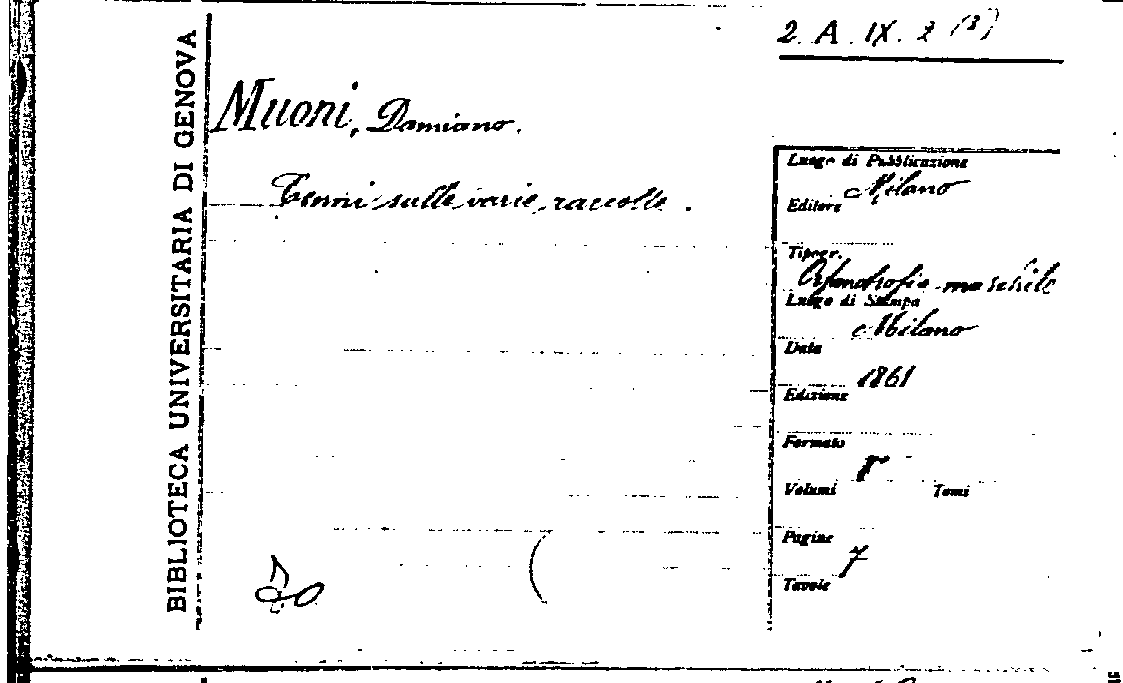 2. A. IX. 2 (3)
BIBLIOTECA UNIVERSITARIA DI GENOVA
Muoni, Damiano.
Cenni sulle varie raccolte.
Luogo di Pubblicazione
Milano
Editore
Tipogr.
Orfanotrofio maschile
Luogo di Stampa
Milano
Data
1861
Edizione
Formato
8°
Volumi Tomi
Pagine
7
Tavole